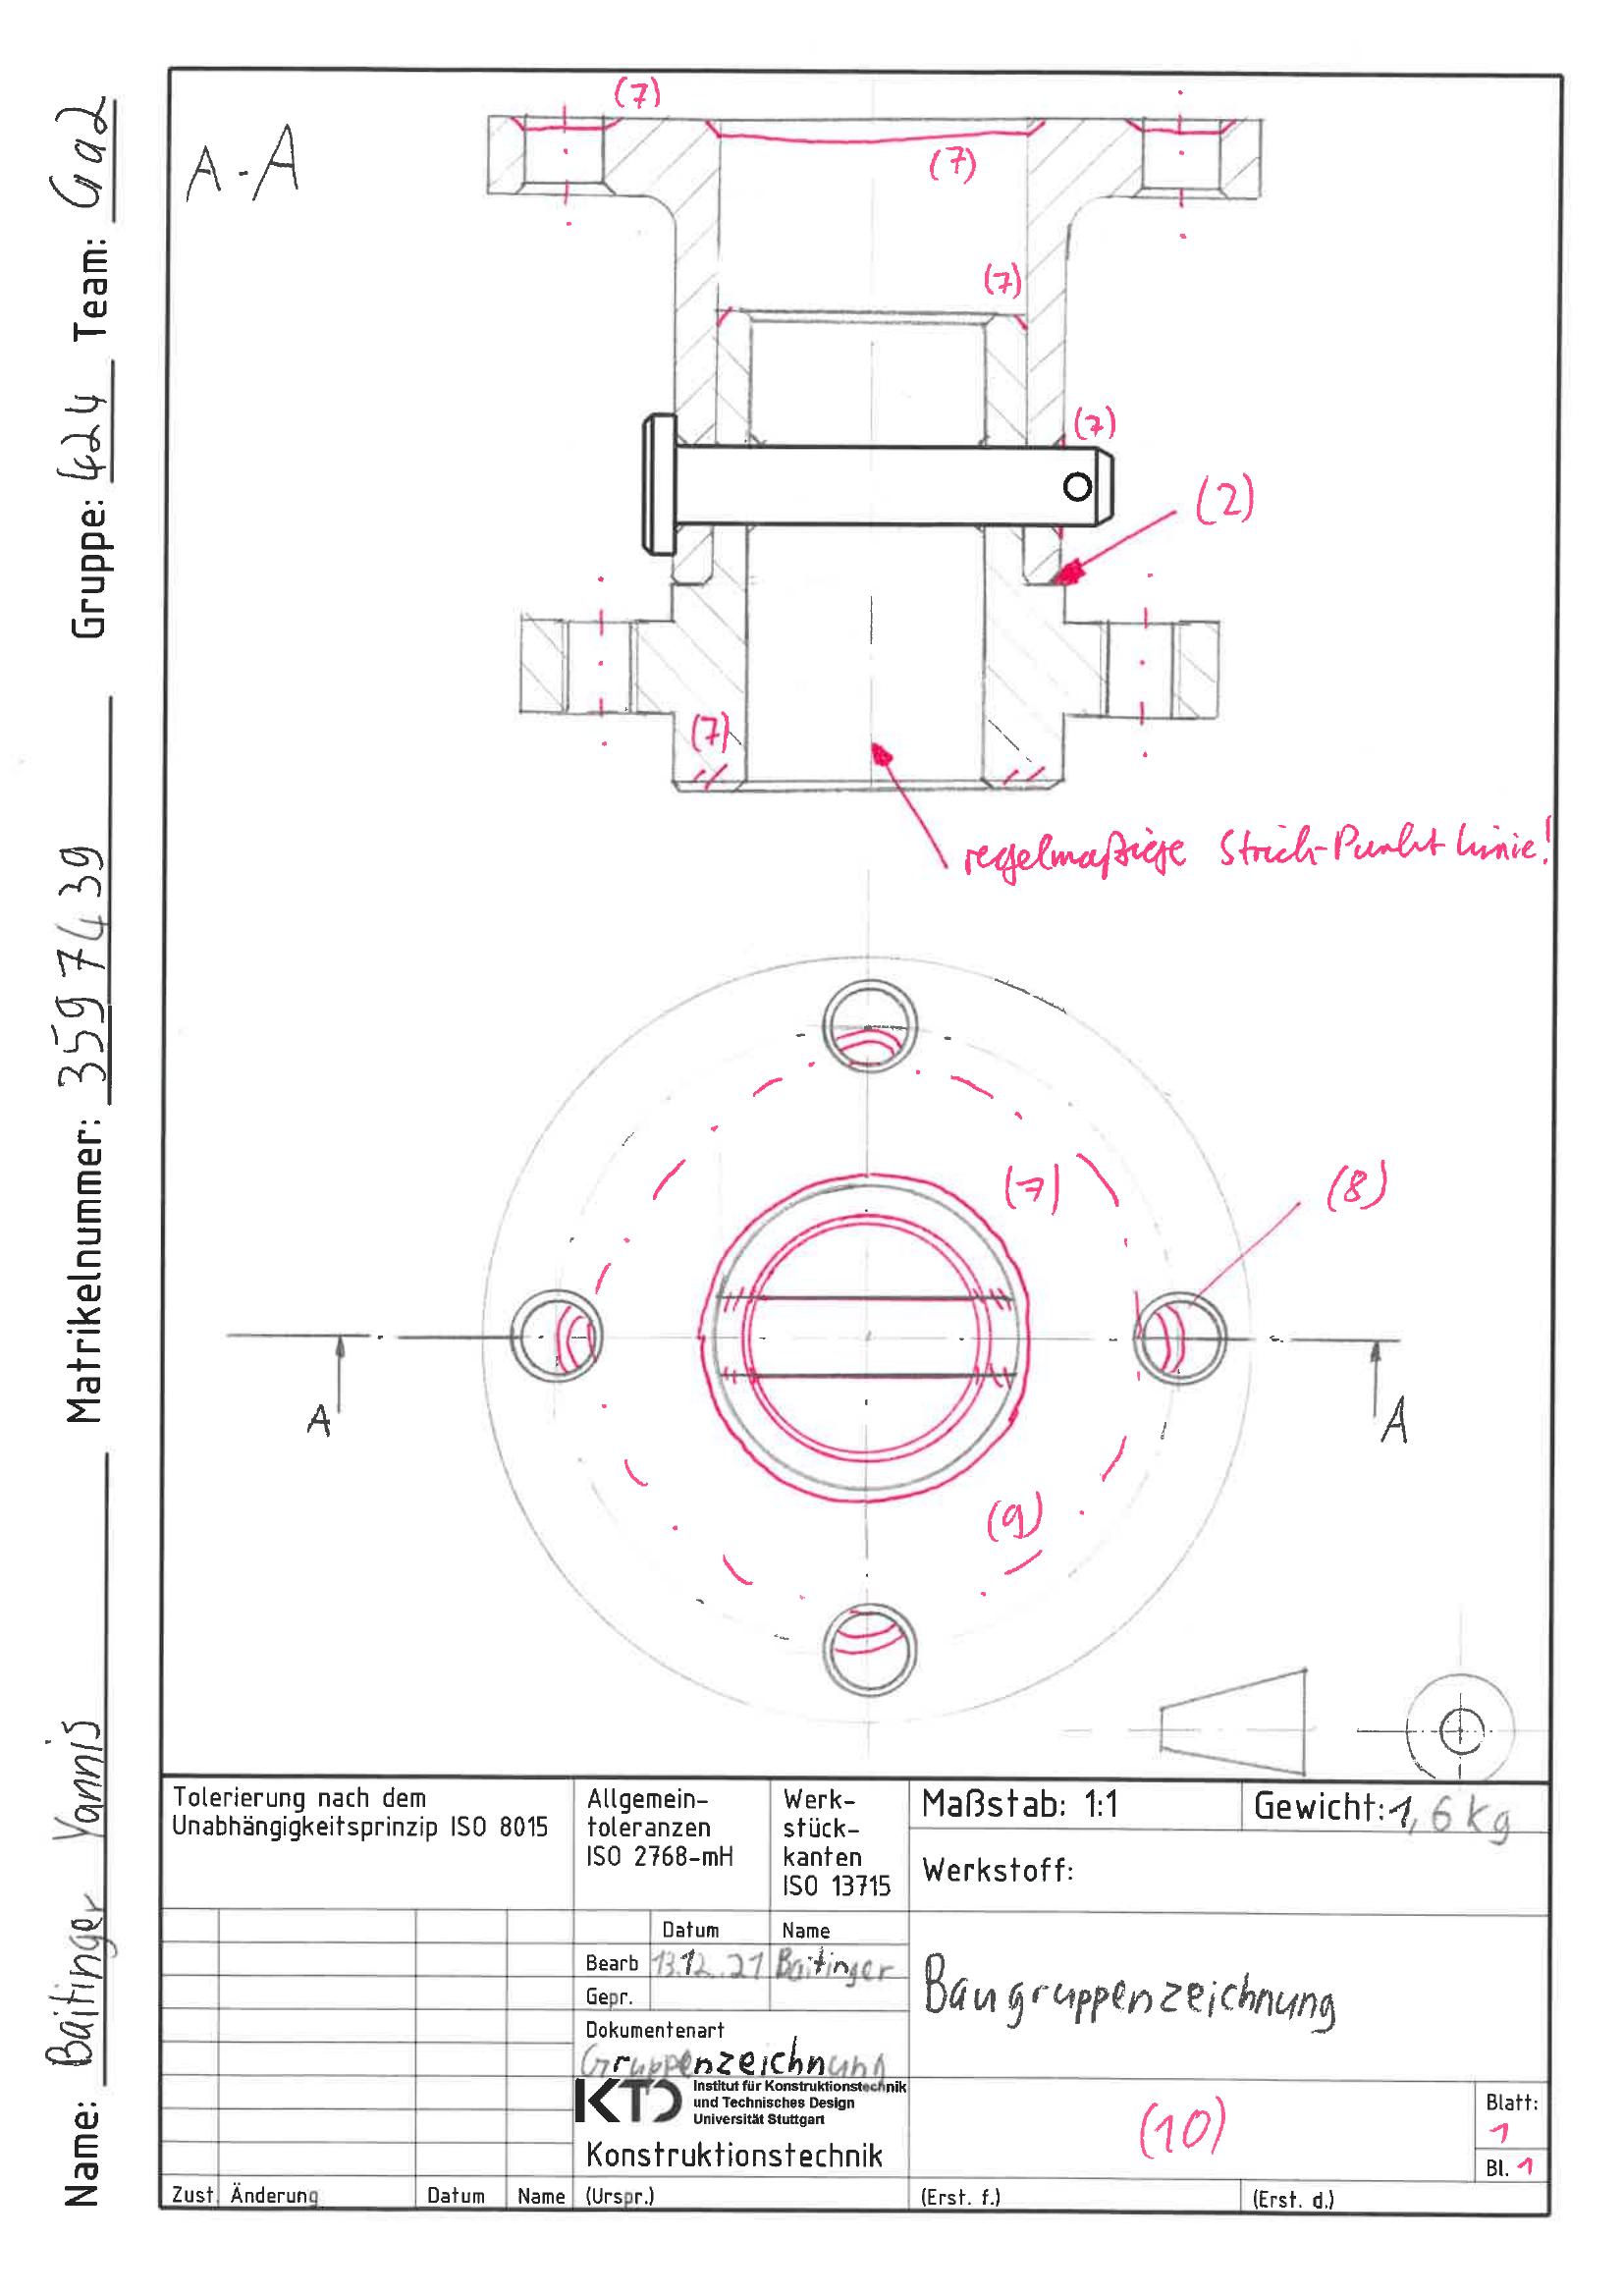 Name: Baitinger Yannis Matrikelnummer: 3597439 Gruppe: 424 Team: Ga2
A-A
(7)
(7)
(7)
(7)
(2)
(7)
regelmäßige Strich-Punkt Linie!
(7)
(8)
A
A
(9)
Tolerierung nach dem
Unabhängigkeitsprinzip ISO 8015
Allgemein-
toleranzen
ISO 2768-mH
Werk-
stück-
kanten
ISO 13715
Maßstab: 1:1
Gewicht: 1,6 kg
Werkstoff:
Datum Name
Bearb 13.12.21 Baitinger
Gepr.
Baugruppenzeichnung
Dokumentenart
Gruppenzeichnung
KTD
Institut für Konstruktionstechnik
und Technisches Design
Universität Stuttgart
Konstruktionstechnik
(10)
Blatt:
1
Bl. 1
Zust Änderung Datum Name (Urspr.) (Erst. f.) (Erst. d.)